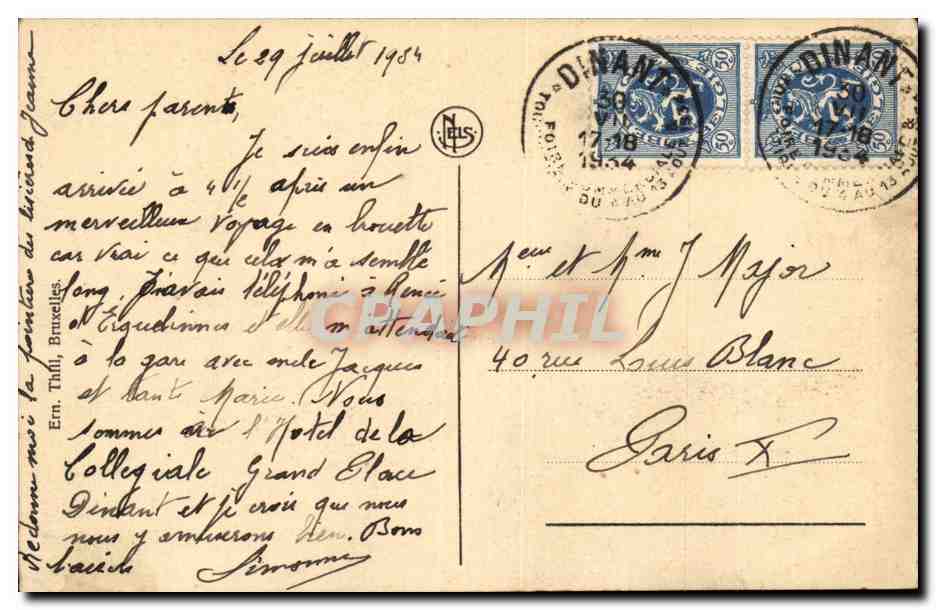 Le 29 juillet 1934
Chers parents,
Je suis enfin
arrivée à 4 1/2 après un
merveilleux voyage en
car vrai ce que cela m'a semblé
long. J'avais téléphoné à Renée
d'Erquelinnes et elle m'attendait
à la gare avec oncle Jacques
et tante Marie. Nous
sommes à l'Hotel de la
Collegiale Grand Place
Dinant et je crois que nous
nous y amuserons bien. Bons
baisers Simonne
Redonne moi la pointure des Jeanne
Ern. Thill, Bruxelles.
NELS
DINANT
30
VII
17-18
1934
DU 4 AU 13
DINANT
30
VII
17-18
1934
DU 4 AU 13
50
50
Meur et Mme J Major
40 rue Louis Blanc
Paris X
CPAPHIL